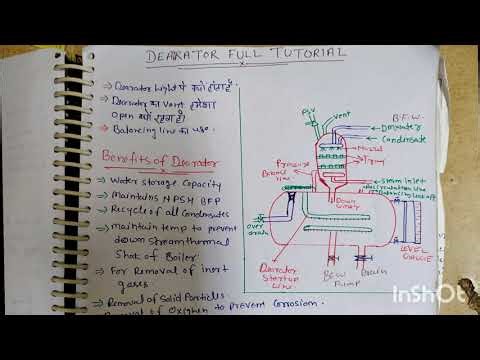 DEARATOR FULL TUTORIAL
→ Dearator Hight पे क्यों होता है.
→ Dearator का Vent हमेशा
Open क्यों रहता है।
→ Balancing line का use.
Benefits of Dearator
→ Water storage Capacity
→ Maintains NPSH BFP
→ Recycle of all Condensates
→ maintain temp to prevent
down stream thermal
Shok of Boiler
→ For Removal of inert
gases
→ Removal of Solid Particles
of Oxighen to prevent Corrosion.
PSV
Vent
B.F.W.
Condensate
Nozzel
Tray
Steam inlet
Pressure
Balance
line
Down
Comer
Over
drain
Dearator
Startup
line
BFW
Pump
Drain
LEVEL
GAUGE
InShOt